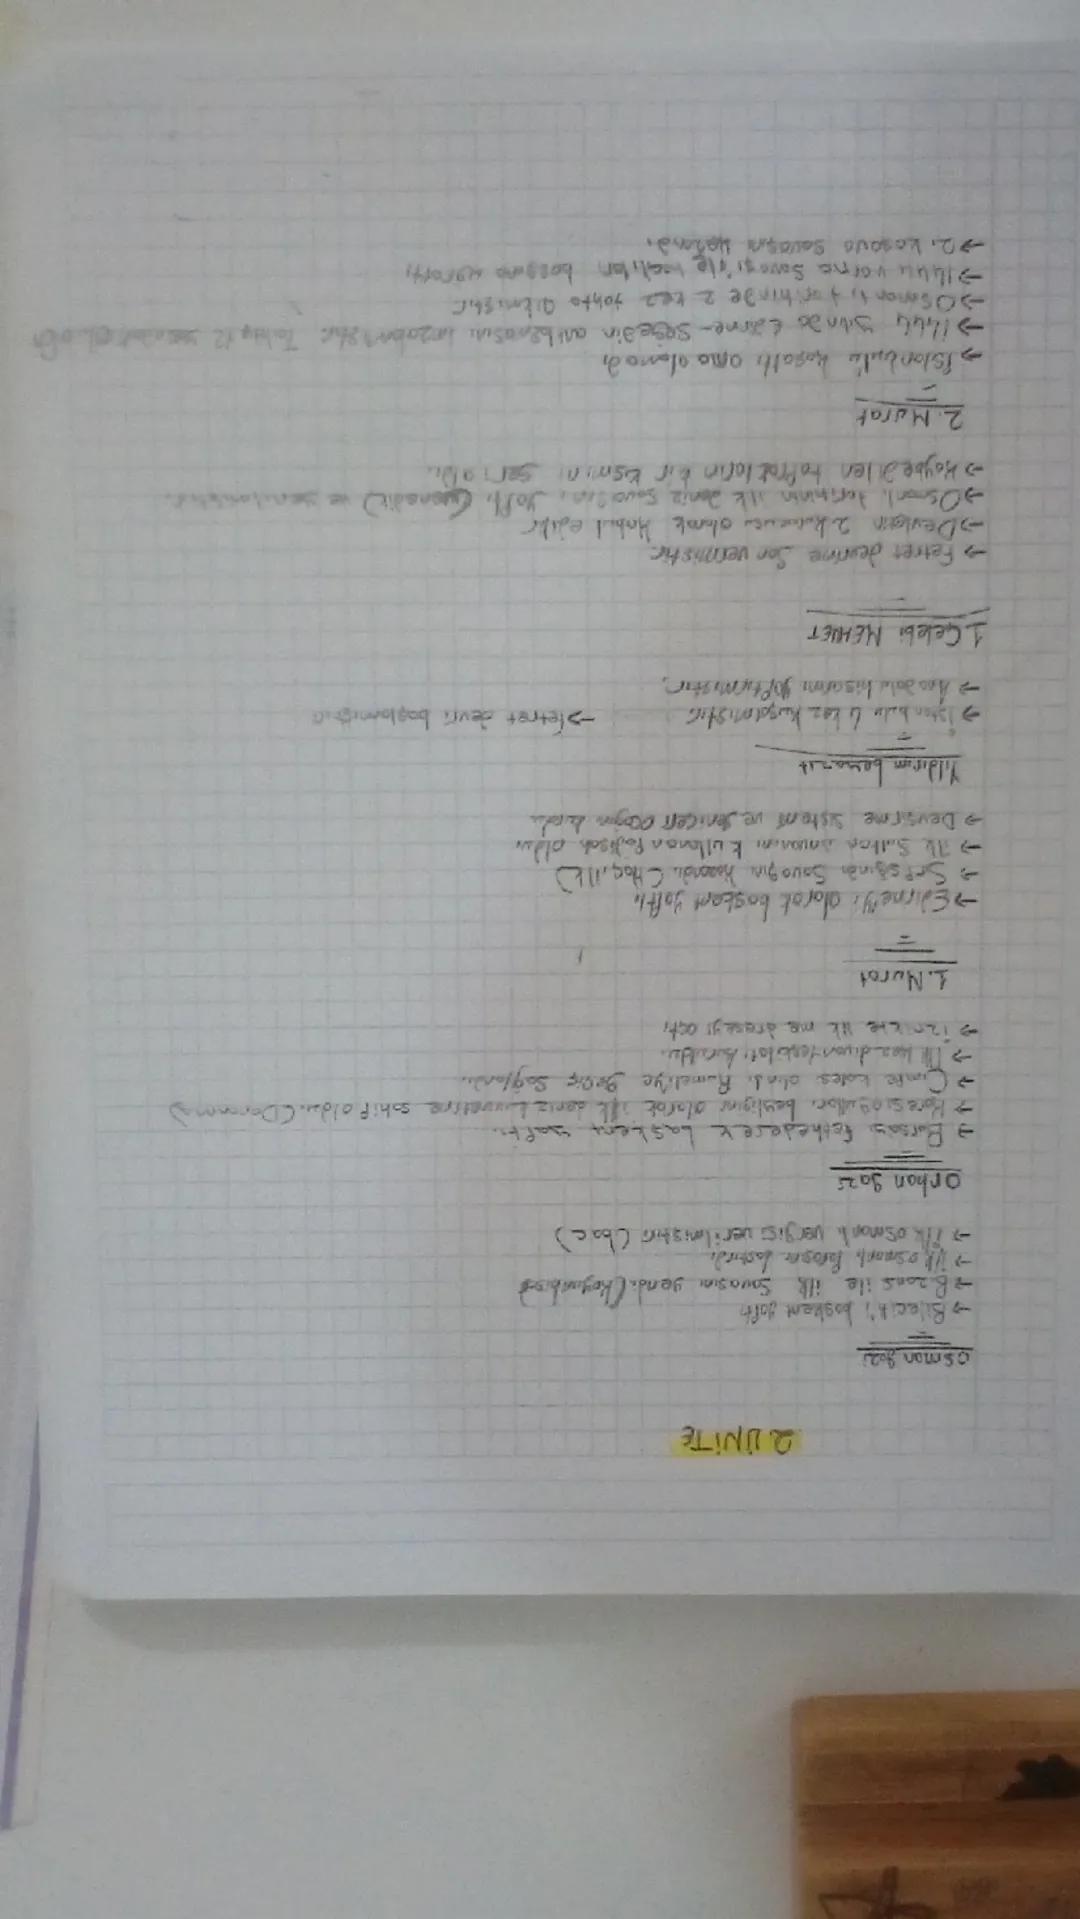 2.ÜNİTE
osman gazi
→ Bilecik'i başkent yaptı
→ Bizans ile ilk savaşını yendi.(koyunhisar)
→ ilk osmanlı parasını bastırdı.
→ ilk osmanlı vergisi verilmiştir (bac)
Orhan gazi
→ Bursayı fethederek başkent yaptı.
→ Karesioğulları beyliğini alarak ilk deniz kuvvetine sahip oldu.(Donanma)
→ Çimpe kalesi alındı. Rumeli'ye geçiş sağlandı.
→ İlk kez divan teşkilatı kuruldu.
→ iznikte ilk medreseyi açtı
1.Murat
→ Edirne'yi alarak başkent yaptı
→ Sırpsındığı Savaşını kazandı. (Haçlı,ilk)
→ ilk Sultan ünvanını kullanan Padişah oldu
→ Devşirme sistemi ve yeniçeri ocağını kurdu
Yıldırım beyazıt
→ istanbulu 4 kez kuşatmıştır → fetret devri başlamıştır
→ Anadolu hisarını yaptırmıştır.
1.Çelebi MEHMET
→ Fetret devrine son vermiştir
→ Devletin 2.kurucusu olarak kabul edilir
→ Osmanlı tarihinin ilk deniz savaşını yaptı. (venedik) ve yenilmiştir.
→ kaybedilen toprakların bir kısmını geri aldı.
2.Murat
→ İstanbulu kuşattı ama alamadı
→ 1444 yılında Edirne-Segedin antlaşmasını imzalamıştır.
→ Osmanlı tarihinde 2 kez tahta çıkmıştır
→ 1444 varna savaşı ile haçlıları bozguna uğrattı
→ 2. kosova savaşını kazandı.